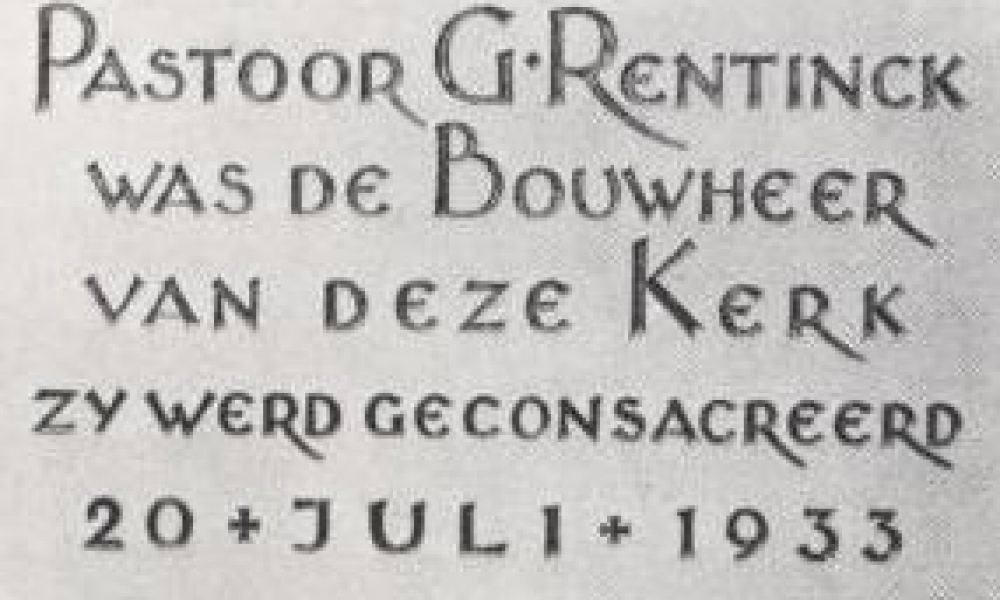 PASTOOR G·RENTINCK
WAS DE BOUWHEER
VAN DEZE KERK
ZY WERD GECONSACREERD
20+JULI+1933